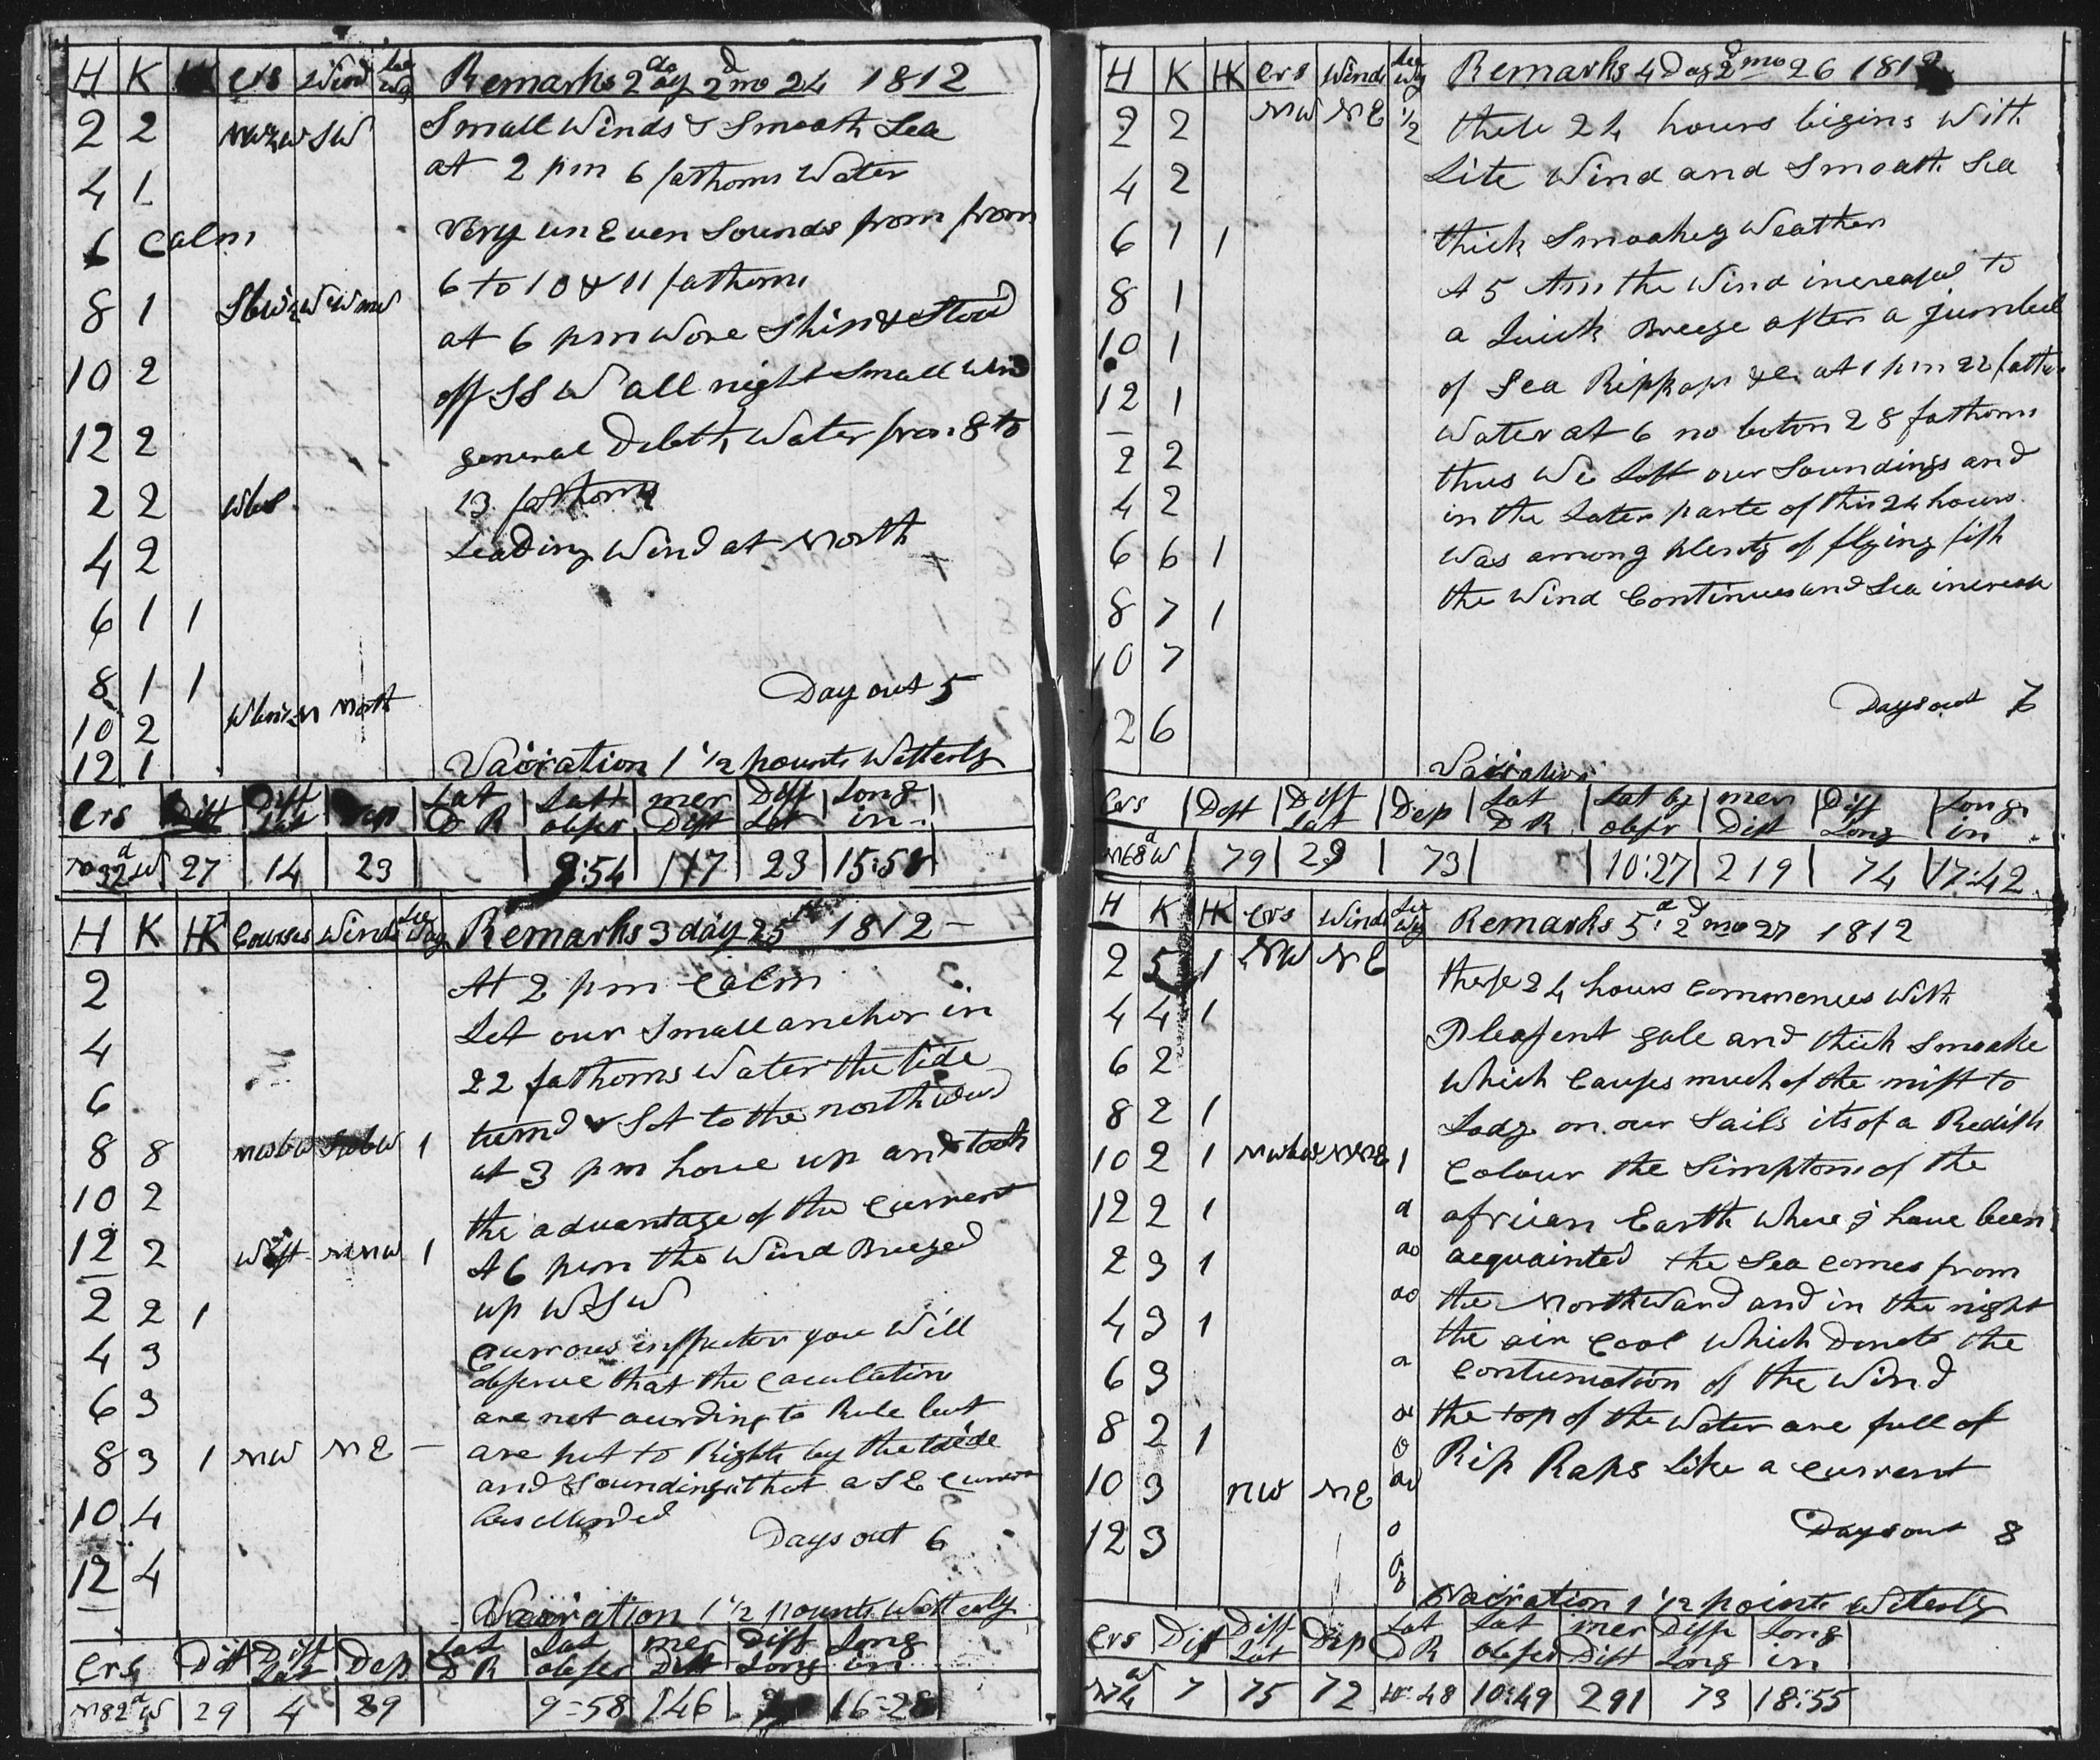 H K Crs Wind Lee Wy Remarks 2 day 2d mo 24 1812
2 2 SW Small Winds & Smooth Sea
4 1 at 2 pm 6 fathoms Water
6 Calm Very un Even Sounds from from
6 to 10 & 11 fathoms
8 1 at 6 pm Wore Ship & Stood
10 2 off SSW all night Small Wind
12 2 general Debth Water from 8 to
2 2 13 fathoms
4 2 Leading Wind at North
6 1 1
8 1 1 Day out 5
10 2 North
12 1 Vairation 1 1/2 pounts Westerly
Crs Dist Diff Lat Dep Lat D R Latt obser mer Dist Diff Lot Long in
N 32d W 27 14 23 9:54 117 23 15:58
H K HK Courses Winds Lee Way Remarks 3 day 25 1812 –
2 At 2 pm Calm
Let our Small anchor in
4 22 fathoms Water the tide
6 turnd & Set to the northward
8 8 NWbW SWbW 1 at 3 pm hove up and took
10 2 the advantage of the Current
12 2 West NNW 1 At 6 pm the Wind Breezed
2 2 1 up WSW
4 3 Currous inspector you Will
observe that the Caculation
6 3 are not acurding to Rule but
8 3 1 NW NE – are put to Rights by the tide
and Soundings that a SE Curren
10 4 has
Days out 6
12 4
Vairation 1 1/2 pounts Westerly
Crs Dist Diff Lat Dep Lat D R Lat obser mer Dist Diff Long Long in
N 82d W 29 4 29 9=58 146 16=28
H K HK Crs Winds Lee Wy Remarks 4 Day 2d mo 26 1812
2 2 NW NE 1/2 these 24 hours begins With
4 2 Lite Wind and Smooth Sea
6 1 1 thick Smoakey Weather
8 1 At 5 Am the Wind increased to
10 1 a Quick Breeze after a jumbel
of Sea Rippraps &c at 1 pm 22 fathom
12 1 Water at 6 no botom 28 fathoms
2 2 thus We Left our Soundings and
4 2 in the Later parte of this 24 hours
6 6 1 Was among plenty of flying fish
8 7 1 the Wind Continues and Sea increase
10 7
Days out 7
12 6
Vairation
Crs Dist Diff Lat Dep Lat D R Lat by obser mer Dist Diff Long Long in
N 68d W 79 29 73 10:27 219 74 17:42
H K HK Crs Winds Lee Wy Remarks 5d 2d mo 27 1812
2 5 1 NW NE these 24 hours Commences With
4 4 1 Pleasent gale and thick Smoake
6 2 Which Causes much of the mist to
8 2 1 Lodge on our Sails its of a Redish
10 2 1 NWbW NNE 1 Colour the Simptom of the
12 2 1 african Earth Where I have been
2 3 1 acquainted the Sea Comes from
4 3 1 the Northward and in the night
the air Cool Which Donots the
6 3 Continuation of the Wind
8 2 1 the top of the Water are full of
10 3 NW NE Rip Raps Like a Current
12 3 Days out 8
Vairation 1 1/2 points Westerly
Crs Dist Diff Lat Dep Lat D R Lat obser mer Dist Diff Long Long in
N 74 W 7 75 72 10:48 10:49 291 73 18:55